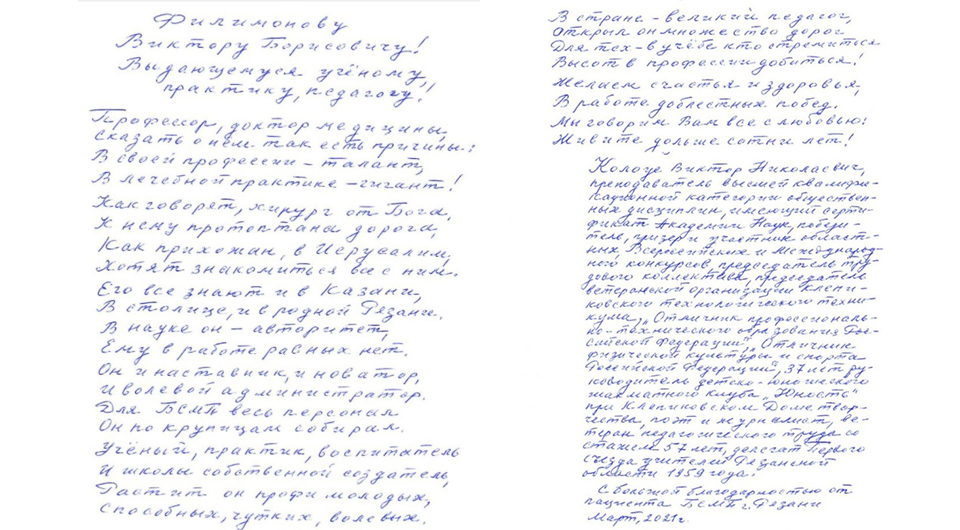 Филимонову
Виктору Борисовичу!
Выдающемуся учёному,
практику, педагогу!
Профессор, доктор медицины,
Сказать о нём так есть причины:
В своей профессии – талант,
В лечебной практике – гигант!
Как говорят, хирург от Бога,
К нему протоптана дорога,
Как прихожан, в Иерусалим,
Хотят знакомиться все с ним.
Его все знают и в Казани,
В столице, и в родной Рязани.
В науке он – авторитет,
Ему в работе равных нет.
Он и наставник, и новатор,
И волевой администратор.
Для БСМП весь персонал
Он по крупицам собирал.
Учёный, практик, воспитатель
И школы собственной создатель,
Растит он профи молодых,
Способных, чутких, волевых.
В стране – великий педагог,
Открыл он множество дорог
Для тех – в учёбе кто стремиться
Высот в профессии добиться!
Желаем счастья и здоровья,
В работе доблестных побед.
Мы говорим Вам все с любовью:
Живите дольше сотни лет!
Колоде Виктор Николаевич,
преподаватель высшей квалифи-
кационной категории обществен-
ных дисциплин, имеющий серти-
фикат Академии Наук, победи-
тель, призёр и участник област-
ных, Всероссийских и Международ-
ного конкурсов, председатель тру-
дового коллектива, председатель
ветеранской организации Клепи-
ковского технологического техни-
кума, „Отличник профессиональ-
но-технического образования Рос-
сийской Федерации", „Отличник
физической культуры и спорта
Российской Федерации", 37 лет ру-
ководитель детско-юношеского
шахматного клуба „Юность"
при Клепиковском Доме твор-
чества, поэт и журналист, ве-
теран педагогического труда со
стажем 57 лет, делегат Первого
съезда учителей Рязанской
области 1959 года.
С большой благодарностью от
пациента БСМП г. Рязани
Март, 2021г.